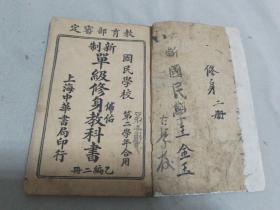 教育部審定
國民學校
第二學年合用
新制
單級修身教科書
乙編二冊
上海中華書局印行
修身二册
國民